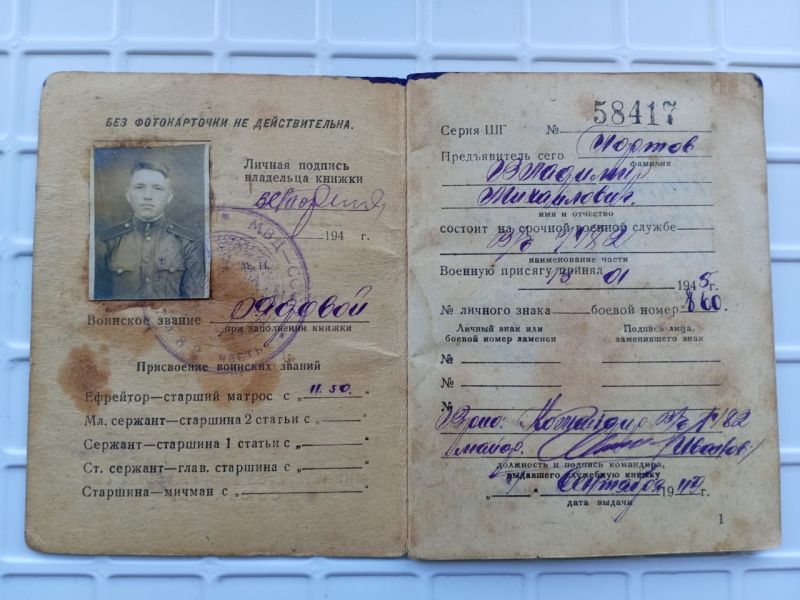 БЕЗ ФОТОКАРТОЧКИ НЕ ДЕЙСТВИТЕЛЬНА.
Личная подпись
владельца книжки
194 г.
МВД-ССС
Воинское звание рядовой
при заполнении книжки
часть
Присвоение воинских званий
Ефрейтор—старший матрос с „ 11.50.
Мл. сержант—старшина 2 статьи с „
Сержант—старшина 1 статьи с „
Ст. сержант—глав. старшина с „
Старшина—мичман с „
Серия ШГ № 58417
Предъявитель сего
фамилия
Владимир
Михайлович
имя и отчество
состоит на срочной военной службе
наименование части
Военную присягу принял 13 01 1945 г.
№ личного знака боевой номер 860.
Личный знак или боевой номер заменен
Подпись лица, заменившего знак
№
№
№
Врио: Командир
майор
должность и подпись командира,
выдавшего служебную книжку
„ " сентября 19 г.
дата выдачи
1